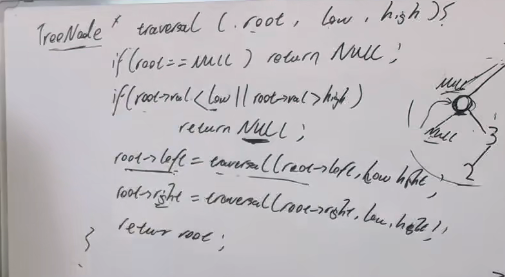 TreeNode * traversal (root, low, high) {
if (root == NULL) return NULL;
if (root->val < low || root->val > high)
return NULL;
root->left = traversal(root->left, low hight);
root->right = traversal(root->right, low, hight);
retur root;
}
NULL
NULL
3
2